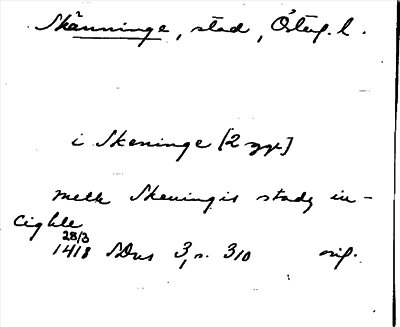 Skänninge, stad, Österg. l.
i Skeninge [2 ggr]
meth Skeningis stadz in-
cighle
28/3
1418 SDns 3, s. 310 orig.